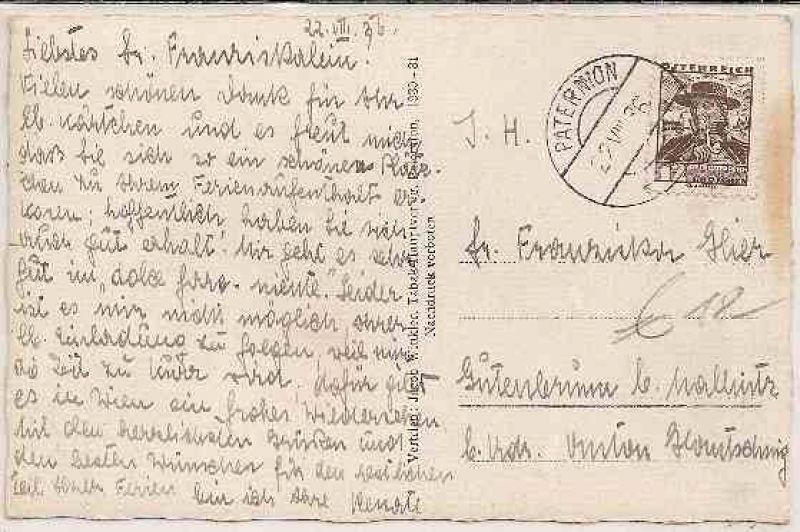 22. VIII. 36.
Liebstes Frl. Franziskalein!
Vielen schönen Dank für Ihr
lb. Kärtchen und es freut mich
daß Sie sich so ein schönes Plätz-
chen zu Ihrem Ferienaufenthalt er-
koren; hoffentlich haben Sie sich
auch gut erholt! Mir geht es sehr
gut im „dolce farre-niente." Leider
ist es mir nicht möglich Ihrer
lb. Einladung zu folgen, weil mir
die Zeit zu kurz wird. Dafür gibt
es in Wien ein „frohes" Wiedersehen
Mit den herzlichsten Grüßen und
den besten Wünschen für den restlichen
Teil Ihrer Ferien bin ich Ihre Renate
Verleger: Jacob Winkler, Tabakhauptverlag, Paternion, 1930-31
Nachdruck verboten
PATERNION
22 VIII 36
ÖSTERREICH
I. H.
Fr. Franziska
€ 18-
Gutenbrunn b.
b. Anton